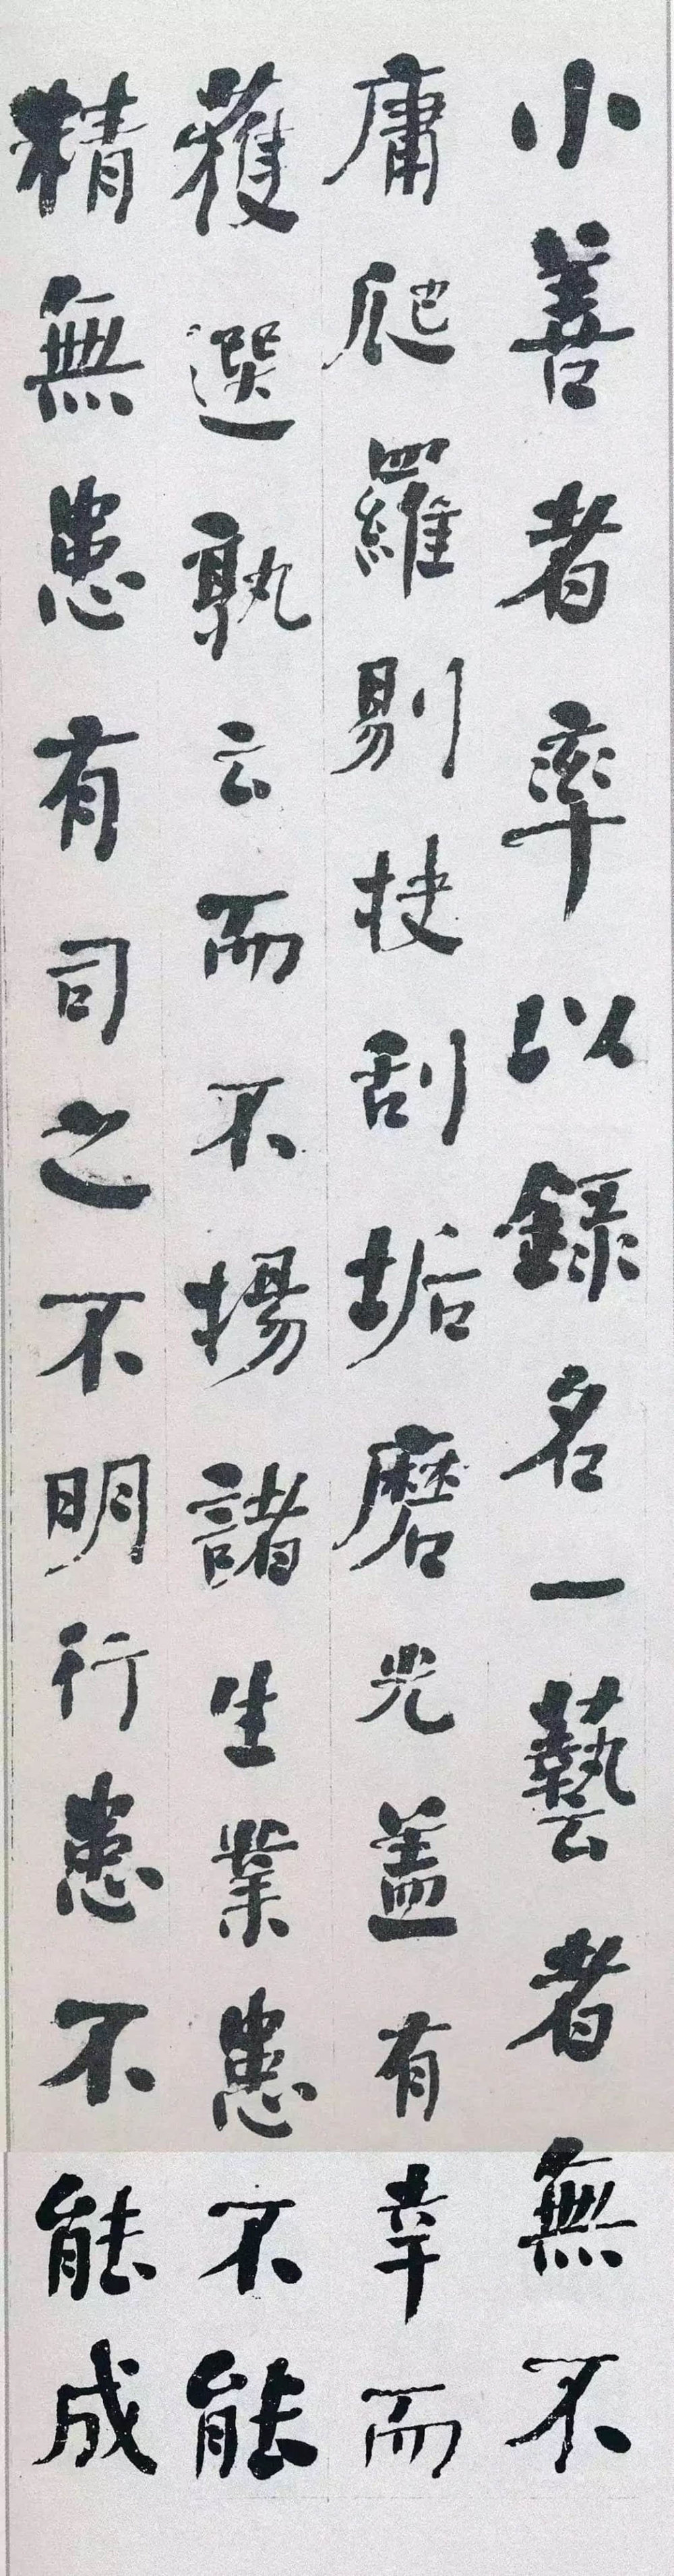 小善者率以錄名一藝者無不
庸爬羅剔抉刮垢磨光蓋有幸而
獲選孰云而不揚諸生業患不能
精無患有司之不明行患不能成